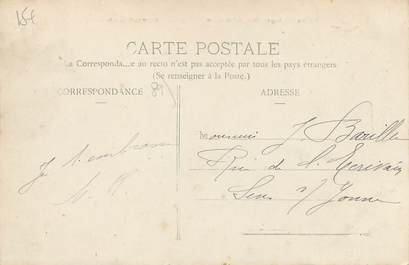 15€
CARTE POSTALE
La Corresponda...e au recto n'est pas acceptée par tous les pays étrangers
(Se renseigner à la Poste.)
CORRESPONDANCE 89
ADRESSE
Monsieur J. Barillé
Rue de l'Ecrivain
Sens s/ Yonne
Je t'embrasse